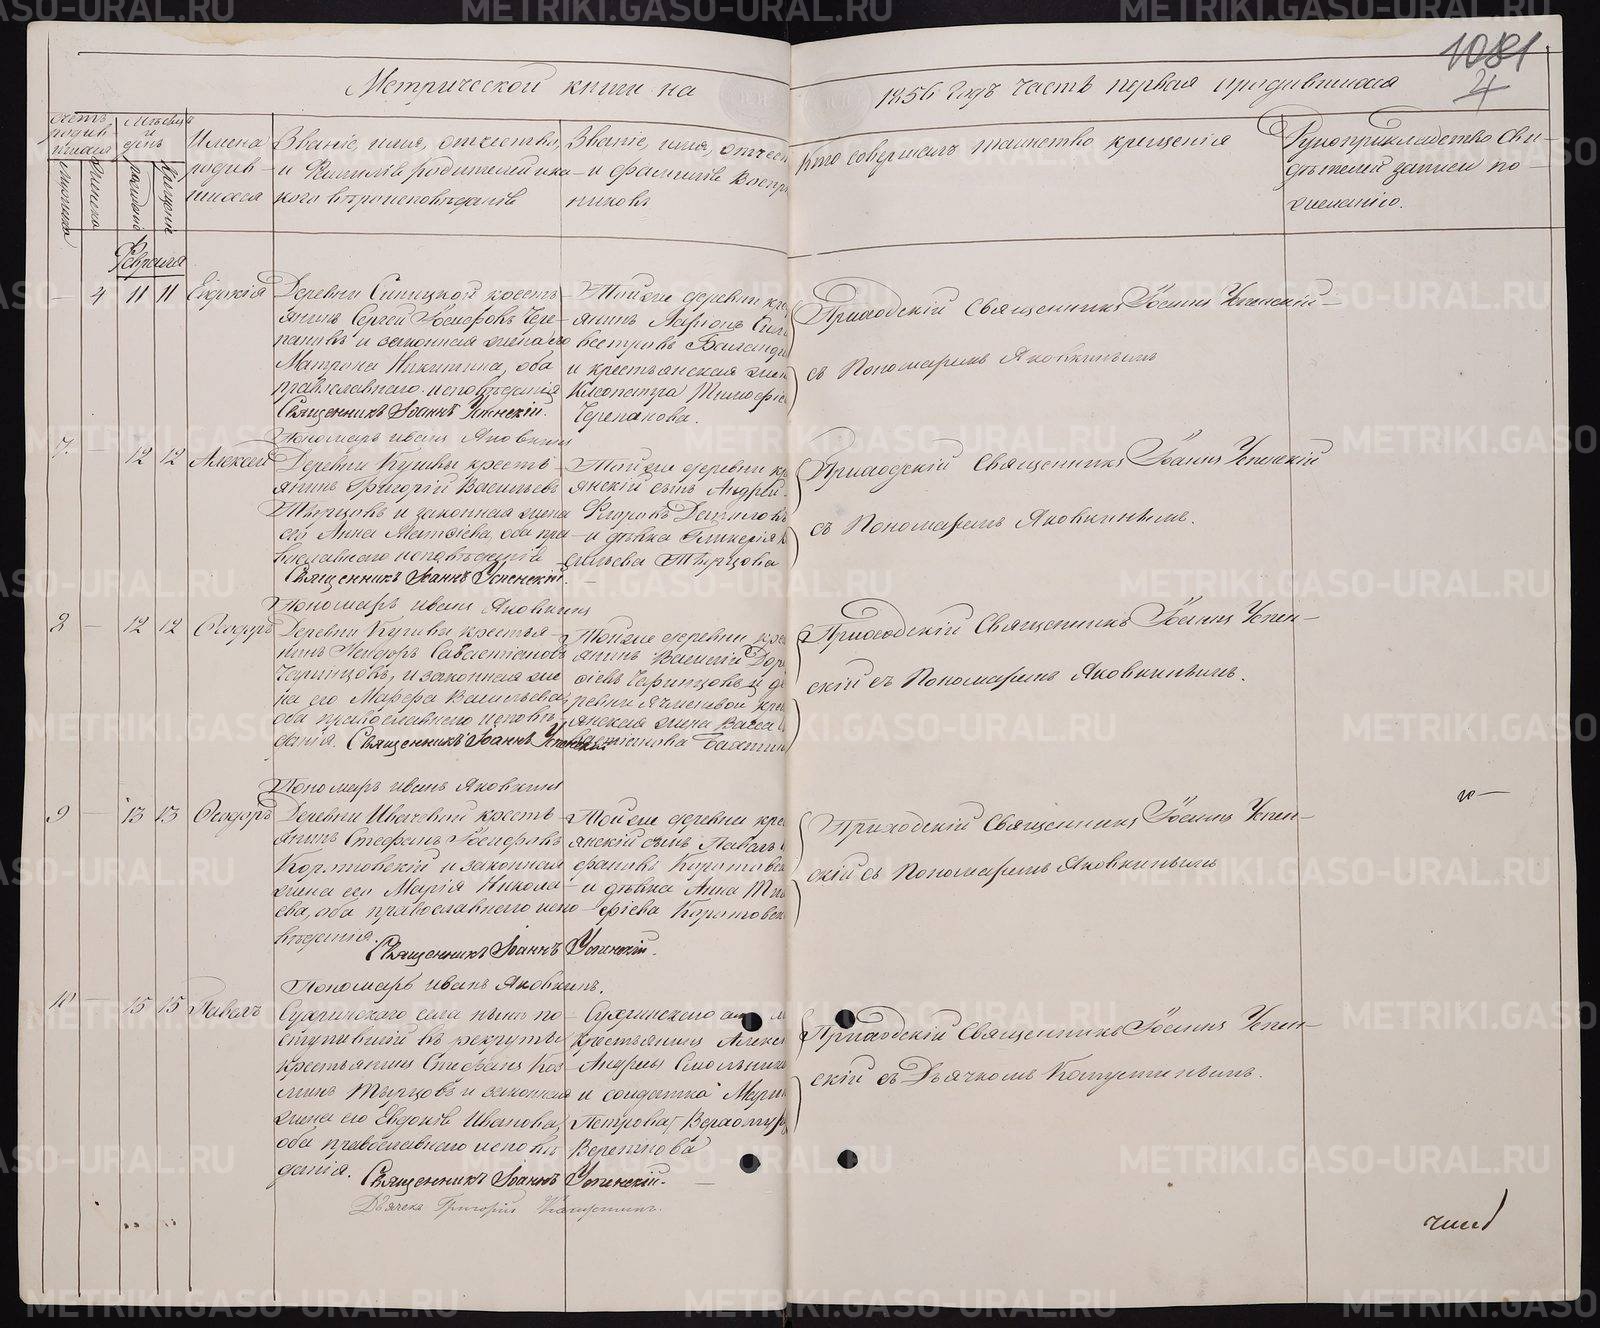 Метрической книги на 1856 годъ часть первая о родившихся
1081
4
Счетъ родившихся
мужеска
женска
Мѣсяцъ и день
рожденія
крещенія
Имена родившихся
Званіе, имя, отчество,
и фамилія родителей и ка-
кого вѣроисповѣданія
Званіе, имя, отчест
и фамилія воспр
никовъ
Кто совершалъ таинство крещенія
Рукоприкладство сви-
дѣтелей записи по
желанію.
Февраля
— 4 11 11 Евдокія
Деревни Сипицкой кресть-
янинъ Сергей Іосифовъ Чере-
пановъ и законная жена его
Матрона Никитина, оба
православнаго исповѣданія
Священникъ Іоаннъ Успенскій.
Пономарь Иванъ Яковкинъ
Той же деревни кре
янинъ Ларіонъ Сил
вестровъ Баланди
и крестьянская жен
Клеопатра Тимофее
Черепанова.
Приходскій Священникъ Іоаннъ Успенскій
съ Пономаремъ Яковкинымъ
7. — 12 12 Алексей
янинъ Григорій Васильевъ
Тырцовъ и законная жена
его Анна Матвѣева, оба пра-
вославнаго исповѣданія
Священникъ Іоаннъ Успенскій.
Пономарь Иванъ Яковкинъ
Той же деревни кр
янскій сынъ Андрей
Егоровъ Даниловъ
и дѣвка Гликерія
сильева Тырцова
Приходскій Священникъ Іоаннъ Успенскій
съ Пономаремъ Яковкинымъ.
8 — 12 12 Ѳеодоръ
оба православнаго исповѣ-
данія. Священникъ Іоаннъ Успенскій
Пономарь Иванъ Яковкинъ
Той же деревни кре
янинъ Василій
янская жена Васса
Приходскій Священникъ Іоаннъ Успен-
скій съ Пономаремъ Яковкинымъ.
9 — 13 13 Ѳеодоръ
Деревни Ивачевой кресть-
янинъ Стефанъ Іосифовъ
Коротовскій и законная
жена его Марія Никола-
ева, оба православнаго испо-
вѣданія.
Священникъ Іоаннъ Успенскій.
Пономарь Иванъ Яковкинъ.
Той же деревни кре
янскій сынъ Павелъ
фановъ Коротовск
и дѣвка Анна Ти
фіева Коротовск
Приходскій Священникъ Іоаннъ Успен-
скій съ Пономаремъ Яковкинымъ
10 — 15 15 Павелъ
Сугринскаго села нынѣ по-
ступившій въ рекруты
крестьянинъ Степанъ Коз-
минъ Тырцовъ и законная
жена его Евдокія Иванова,
оба православнаго исповѣ-
данія. Священникъ Іоаннъ Успенскій.
Дьячекъ Григорій Капустинъ.
Сугринскаго
крестьянинъ Алекс
Андреевъ Смольник
и солдатка Мари
Петрова
Приходскій Священникъ Іоаннъ Успен-
скій съ Дьячкомъ Капустинымъ.
METRIKI.GASO-URAL.RU